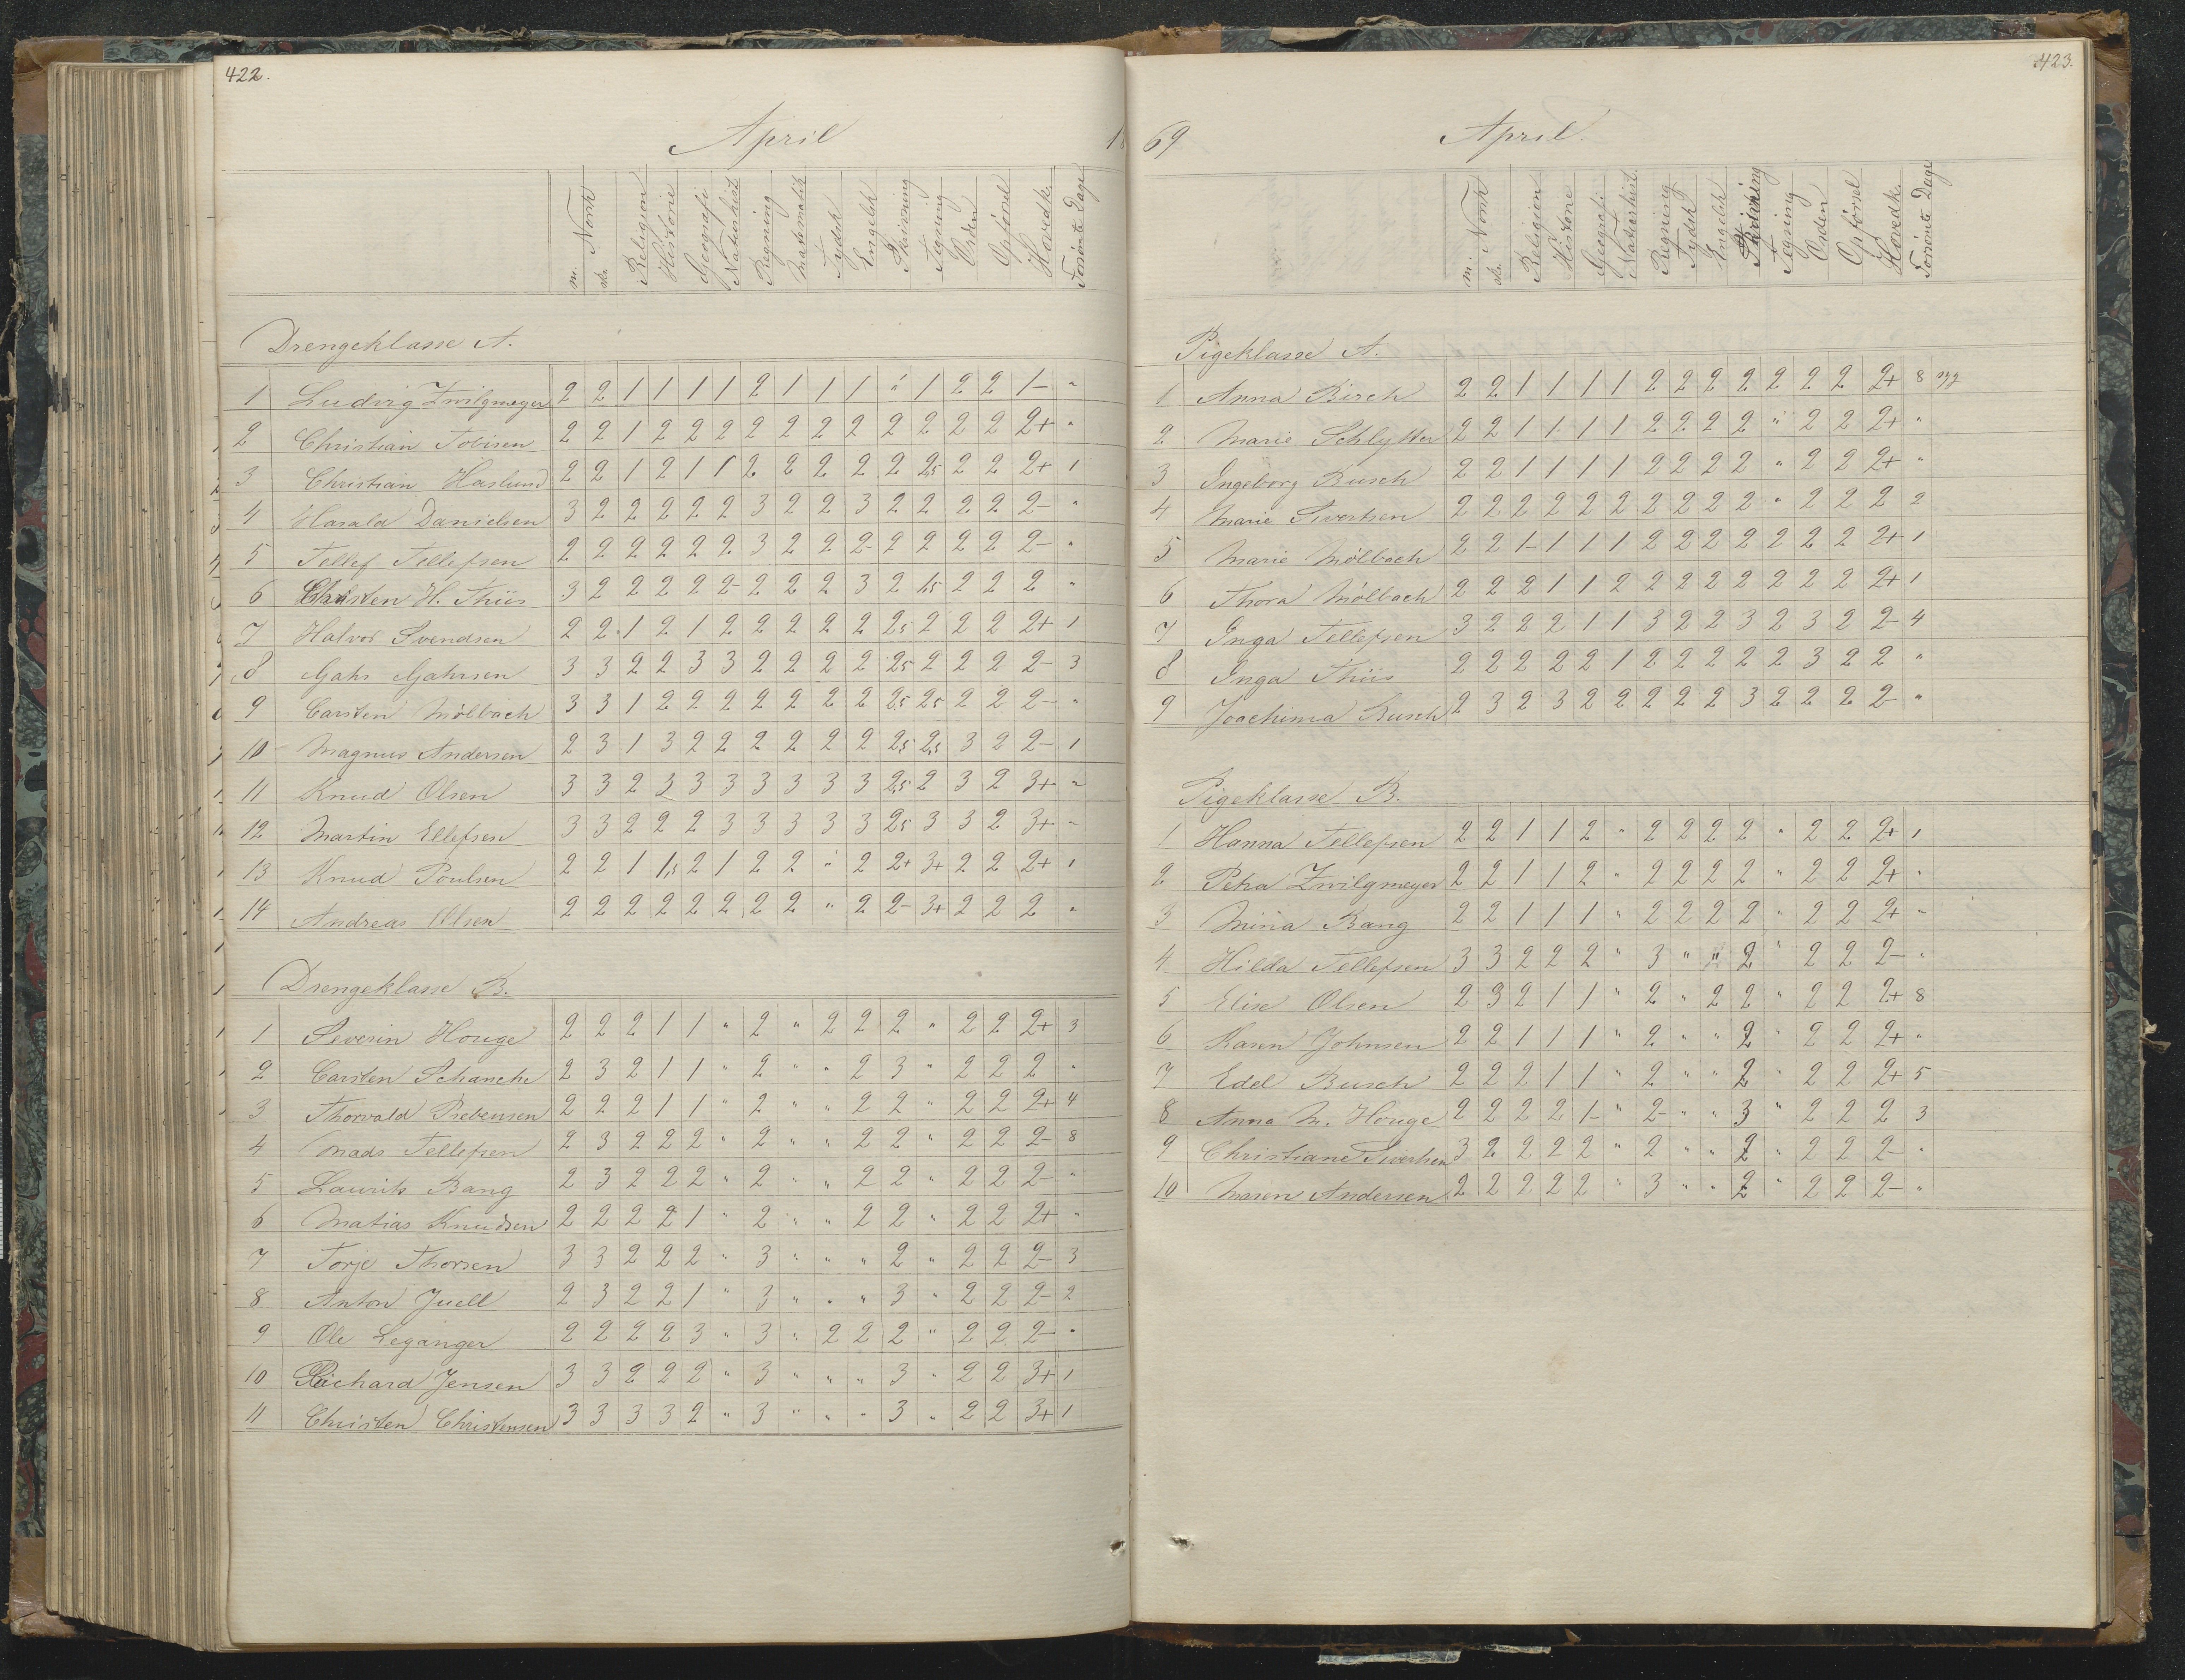 422.
April 18
m. Norsk
sk.
Religion
Historie
Geografi
Naturhist
Regning
Matematik
Tydsk
Engelsk
Skrivning
Tegning
Orden
Opførsel
Hovedk.
Forsømte Dage
Drengeklasse A.
1 Ludvig Zwilgmeyer 2 2 1 1 1 1 2 1 1 1 " 1 2 2 1- "
2 Christian Tobisen 2 2 1 2 2 2 2 2 2 2 2 2 2 2 2+ "
3 Christian Haslund 2 2 1 2 1 1 2 2 2 2 2 2,5 2 2 2+ 1
4 Harald Danielsen 3 2 2 2 2 2 3 2 2 3 2 2 2 2 2- "
5 Tellef Tellefsen 2 2 2 2 2 2 3 2 2 2- 2 2 2 2 2- "
6 Christen H. Thiis 3 2 2 2 2 2- 2 2 2 3 2 1,5 2 2 2 "
7 Halvor Svendsen 2 2 1 2 1 2 2 2 2 2 2,5 2 2 2 2+ 1
8 Gahr Gahrsen 3 3 2 2 3 3 2 2 2 2 2,5 2 2 2 2- 3
9 Carsten Mölbach 3 3 1 2 2 2 2 2 2 2 2,5 2,5 2 2 2- "
10 Magnus Andersen 2 3 1 3 2 2 2 2 2 2 2,5 2,5 3 2 2- 1
11 Knud Olsen 3 3 2 3 3 3 3 3 3 3 2,5 2 3 2 3+ "
12 Martin Ellefsen 3 3 2 2 2 3 3 3 3 3 2,5 3 3 2 3+ "
13 Knud Poulsen 2 2 1 1,5 2 1 2 2 " 2 2+ 3+ 2 2 2+ 1
14 Andreas Olsen 2 2 2 2 2 2 2 2 " 2 2- 3+ 2 2 2 "
Drengeklasse B.
1 Severin Houge 2 2 2 1 1 " 2 " 2 2 2 " 2 2 2+ 3
2 Carsten Schanche 2 3 2 1 1 " 2 " " 2 3 " 2 2 2 "
3 Thorvald Prebensen 2 2 2 1 1 " 2 " " 2 2 " 2 2 2+ 4
4 Mads Tellefsen 2 3 2 2 2 " 2 " " 2 2 " 2 2 2- 8
5 Laurits Bang 2 3 2 2 2 " 2 " " 2 2 " 2 2 2- "
6 Matias Knudsen 2 2 2 2 1 " 2 " " 2 2 " 2 2 2+ "
7 Torje Thorsen 3 3 2 2 2 " 3 " " " 2 " 2 2 2- 3
8 Anton Juell 2 3 2 2 1 " 3 " " " 3 " 2 2 2- 2
9 Ole Leganger 2 2 2 2 3 " 3 " 2 2 2 " 2 2 2- "
10 Richard Jensen 3 3 2 2 2 " 3 " " " 3 " 2 2 3+ 1
11 Christen Christensen 3 3 3 3 2 " 3 " " " 3 " 2 2 3+ 1
423.
69 April.
m. Norsk
sk.
Religion
Historie
Geografi
Naturhist.
Regning
Tydsk
Engelsk
Skrivning
Tegning
Orden
Opførsel
Hovedk.
Forsømte Dage
Pigeklasse A.
1 Anna Birch 2 2 1 1 1 1 2 2 2 2 2 2 2 2+ 8
2 Marie Schlytter 2 2 1 1 1 1 2 2 2 2 " 2 2 2+ "
3 Ingeborg Busch 2 2 1 1 1 1 2 2 2 2 " 2 2 2+ "
4 Marie Sivertsen 2 2 2 2 2 2 2 2 2 2 " 2 2 2 2
5 Marie Mölbach 2 2 1- 1 1 1 2 2 2 2 2 2 2 2+ 1
6 Thora Mölbach 2 2 2 1 1 2 2 2 2 2 2 2 2 2+ 1
7 Inga Tellefsen 3 2 2 2 1 1 3 2 2 3 2 3 2 2- 4
8 Inga Thiis 2 2 2 2 2 1 2 2 2 2 2 3 2 2 "
9 Joachima Busch 2 3 2 3 2 2 2 2 2 3 2 2 2 2- "
Pigeklasse B.
1 Hanna Tellefsen 2 2 1 1 2 " 2 2 2 2 " 2 2 2+ 1
2 Petra Zwilgmeyer 2 2 1 1 2 " 2 2 2 2 " 2 2 2+ "
3 Mina Bang 2 2 1 1 1 " 2 2 2 2 " 2 2 2+ "
4 Hilda Tellefsen 3 3 2 2 2 " 3 " " 2 " 2 2 2- "
5 Elise Olsen 2 3 2 1 1 " 2 " 2 2 " 2 2 2+ 8
6 Karen Johnsen 2 2 1 1 1 " 2 " " 2 " 2 2 2+ "
7 Edel Busch 2 2 2 1 1 " 2 " " 2 " 2 2 2+ 5
8 Anna M. Houge 2 2 2 2 1- " 2- " " 3 " 2 2 2 3
9 Christiane Sivertsen 3 2 2 2 2 " 2 " " 2 " 2 2 2- "
10 Maren Andersen 2 2 2 2 2 " 3 " " 2 " 2 2 2- "